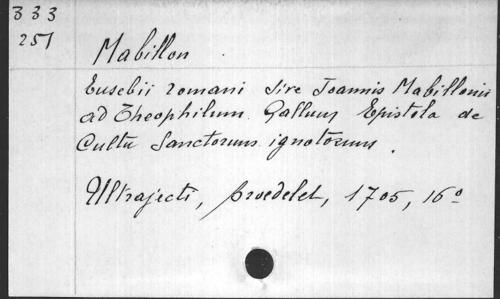 333
251
Mabillon
Eusebii romani sive Joannis Mabillonii
ad Theophilum Gallum Epistola de
Cultu Sanctorum ignotorum.
Ultrajecti, Broedelet, 1705, 16º